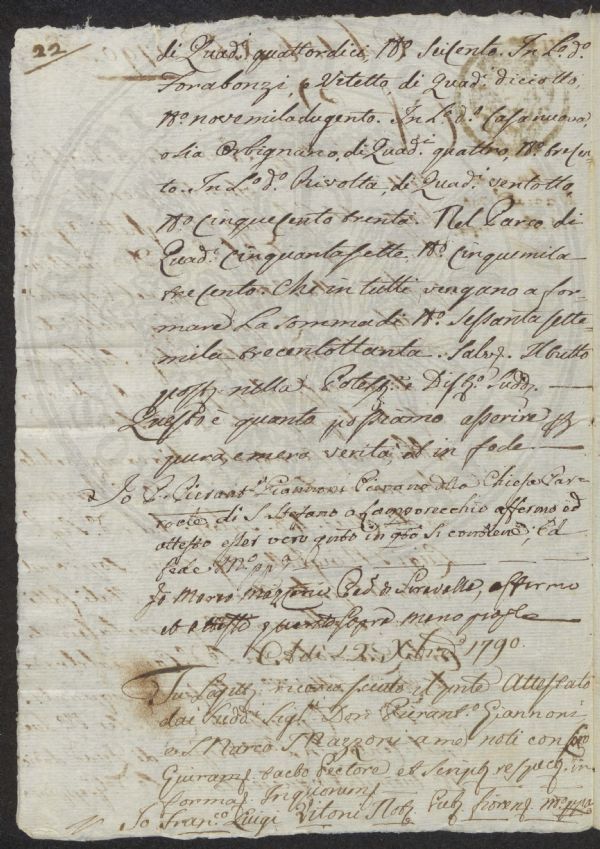 22
di Quad.i quattordici, N.o Seicento. In L.o d.o
Forabonzi, e Vitetto di Quad.i diciotto,
N.o novemiladugento. In L.o d.o Casanuova,
o sia Orbignano, di Quad.i quattro, N.o trecen-
to. In L.o d.o Rivolta, di Quad.i ventotto,
N.o cinquecento trenta. Nel Parco di
Quad.i cinquantasette, N.o cinquemila
trecento. Che in tutti vengano a for-
mare La somma di N.o Sessantasette-
mila trecentottanta. Salv. Il tutto
posti nella Potest.a e Dist.o sudd.
Questo è quanto possiamo asserire per
pura, e mera verità, ed in fede
Io P. Pierant.o Giannoni Pievano della Chiesa Par-
rocch.e di S. Stefano a Lamporecchio affermo ed
attesto esser vero q.nto in q.sto si contiene, ed
fede M.o pp.a
Io Marco Mazzoni affermo
et attesto quanto sopra mano pp.a
A dì 2. Xbre 1790.
riconosciuto il p.nte Attestato
dai sudd. Sig.ri Don Pierant.o Giannoni
e Marco Mazzoni a me noti con Loro
Giuram. tacto Pectore et Script. respect. in
forma
Io Fran.co Luigi Vitoni Not. Pub. Fioren. M.o pp.a